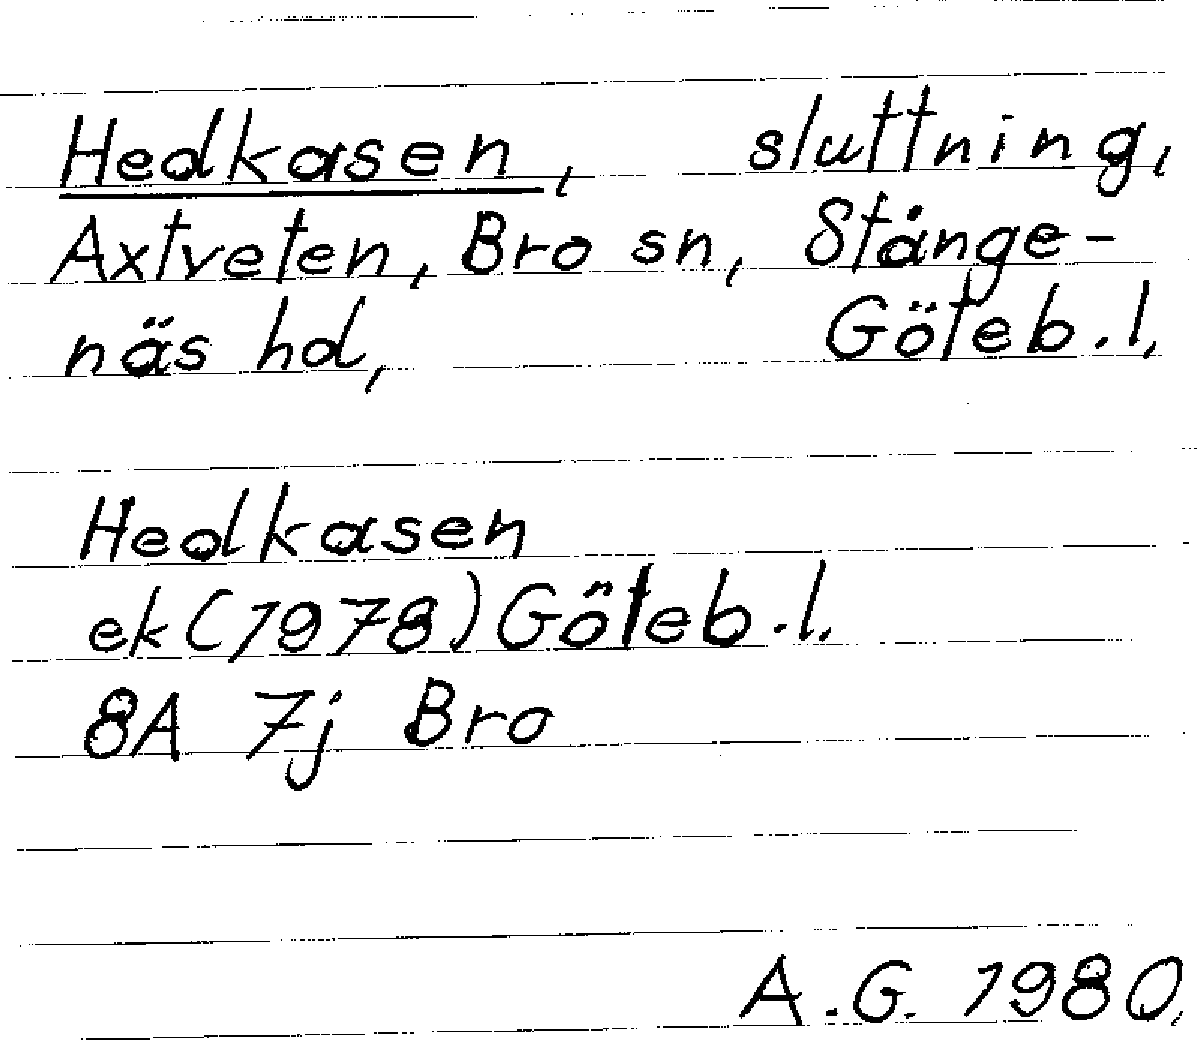 Hedkasen, sluttning,
Axtveten, Bro sn, Stånge-
näs hd, Göteb.l,
Hedkasen
ek(1978)Göteb.l.
8A 7j Bro
A.G. 1980,